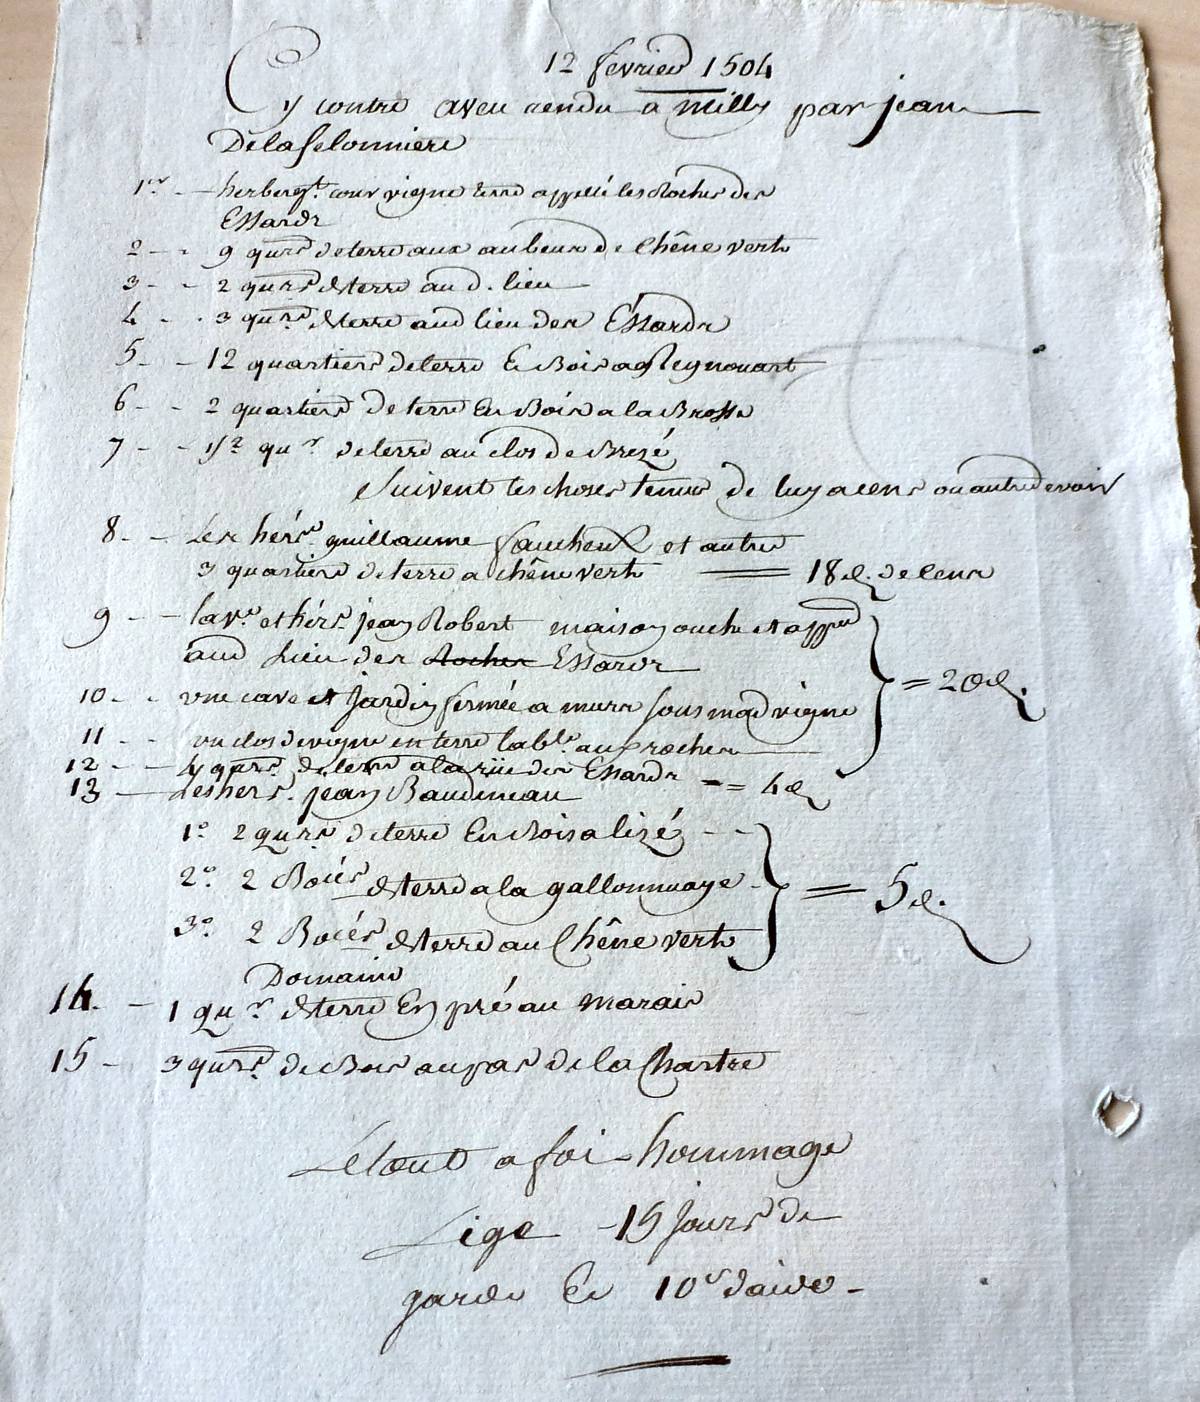 12 fevrier 1504
Cy contre aveu rendu a Milly par jean
Delafelonniere
1er - herbergt. cour vigne terre appellé les Roches des
Essards
2 - - 9 qurs. de terre aux de Chêne vert
3 - - 2 qurs de terre aud. lieu
4 - - 3 qurs. de terre aud lieu des Essards
5 - - 12 quartiers de terre En Bois a
6 - - 2 quartiers De terre En Bois a la Brosse
7 - - 1/2 qur. de terre au clos de Brezé
Suivent les choses tenues de luy a cens ou autre devoir
8 - - Les hérs. guillaume faucheux et autres
3 quartiers de terre a chêne vert = 18d. de cens
9 - - la ve. et hérs. jean Robert maison ouche et app
aud Lieu des Roches Essards
10 - - une cave et jardin fermée a murs sous mad vigne = 20d.
11 - - un clos de vigne en terre lable. aux rocher
12 - - 4 qurs. de terre a la rüe des Essards - = 4d
13 - Les hers. jean Baudineau
1° 2 qurs. de terre En Bois a lizé - -
2° 2 Boiés de terre a la gallonnuaye - = 5d.
3° 2 Boiés de terre au Chêne vert
Domaine
14. - 1 qur. de terre En pré au marais
15 - 3 qurs. de Bois au pas de la Chartre
Le tout a foi - hommage
Lige - 15 jours de
garde Et 10s daide -